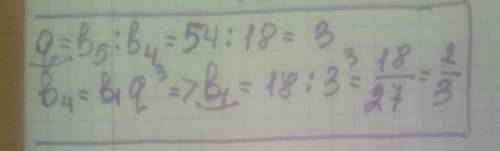 q = b₅ : b₄ = 54 : 18 = 3
b₄ = b₁ q³ => b₁ = 18 : 3³ = 18/27 = 2/3